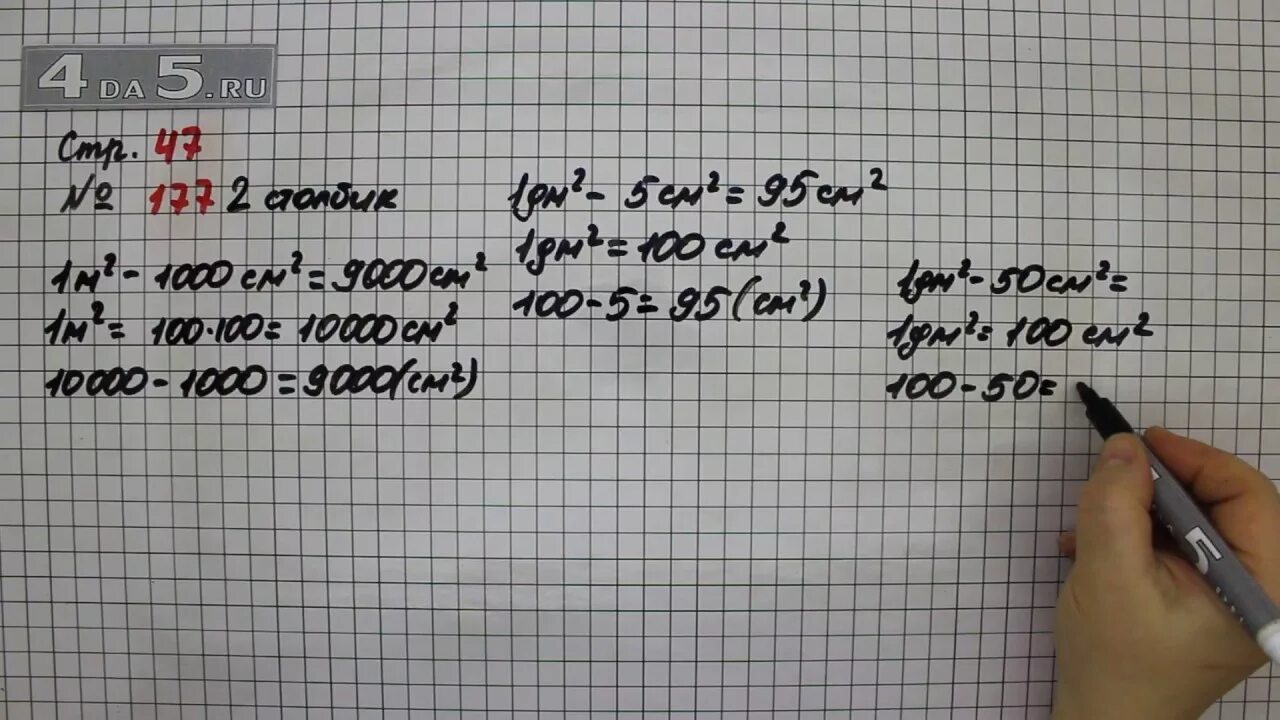 4DA5.RU
Стр. 47
№ 177 2 столбик
1м² - 1000 см² = 9000 см²
1м² = 100·100 = 10000 см²
10000 - 1000 = 9000 (см²)
1дм² - 5 см² = 95 см²
1дм² = 100 см²
100 - 5 = 95 (см²)
1дм² - 50 см² =
1дм² = 100 см²
100 - 50 =
5